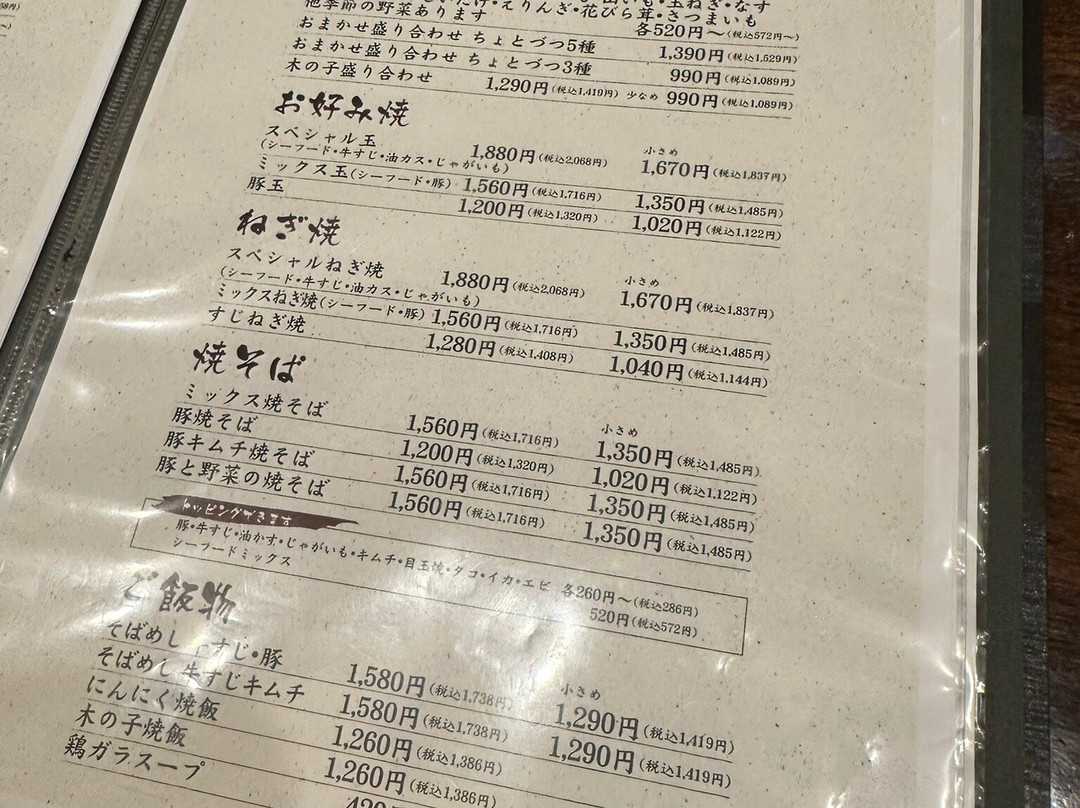 しいたけ・えりんぎ・花びら茸・さつまいも
他季節の野菜あります 各520円～(税込572円～)
おまかせ盛り合わせ ちょとづつ5種 1,390円(税込1,529円)
おまかせ盛り合わせ ちょとづつ3種 990円(税込1,089円)
木の子盛り合わせ 1,290円(税込1,419円) 少なめ 990円(税込1,089円)
お好み焼
スペシャル玉 1,880円(税込2,068円) 小さめ 1,670円(税込1,837円)
(シーフード・牛すじ・油カス・じゃがいも)
ミックス玉(シーフード・豚) 1,560円(税込1,716円) 1,350円(税込1,485円)
豚玉 1,200円(税込1,320円) 1,020円(税込1,122円)
ねぎ焼
スペシャルねぎ焼 1,880円(税込2,068円) 小さめ 1,670円(税込1,837円)
(シーフード・牛すじ・油カス・じゃがいも)
ミックスねぎ焼(シーフード・豚) 1,560円(税込1,716円) 1,350円(税込1,485円)
すじねぎ焼 1,280円(税込1,408円) 1,040円(税込1,144円)
焼そば
ミックス焼そば 1,560円(税込1,716円) 小さめ 1,350円(税込1,485円)
豚焼そば 1,200円(税込1,320円) 1,020円(税込1,122円)
豚キムチ焼そば 1,560円(税込1,716円) 1,350円(税込1,485円)
豚と野菜の焼そば 1,560円(税込1,716円) 1,350円(税込1,485円)
トッピングできます
豚・牛すじ・油かす・じゃがいも・キムチ・目玉焼・タコ・イカ・エビ 各260円～(税込286円)
シーフードミックス 520円(税込572円)
ご飯物
そばめし すじ・豚 1,580円(税込1,738円) 小さめ 1,290円(税込1,419円)
そばめし 牛すじキムチ 1,580円(税込1,738円) 1,290円(税込1,419円)
にんにく焼飯 1,260円(税込1,386円)
木の子焼飯 1,260円(税込1,386円)
鶏ガラスープ